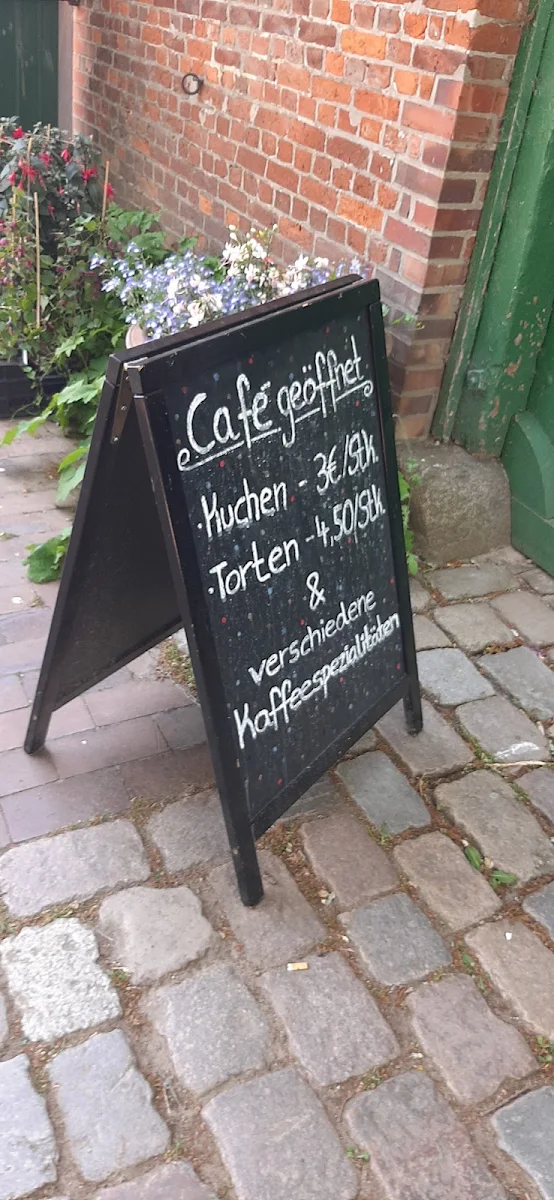 Café geöffnet
·Kuchen - 3€/Stk
·Torten -4,50/Stk
&
verschiedene
Kaffeespezialitäten